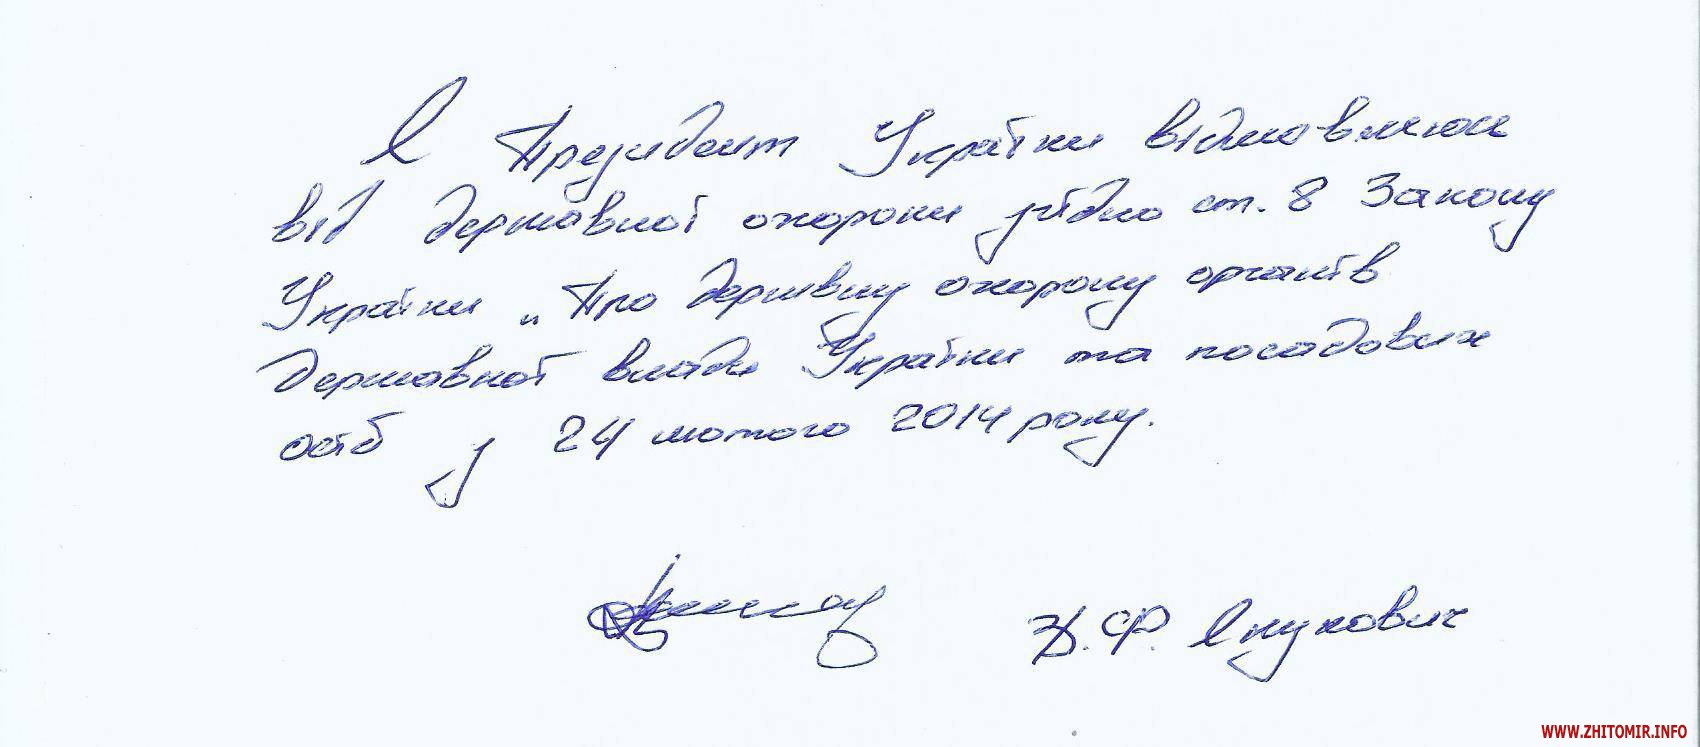 Я Президент України відмовляюся
від державної охорони згідно ст. 8 Закону
України „Про державну охорону органів
державної влади України та посадових
осіб у 24 лютого 2014 року.
В.Ф. Янукович
WWW.ZHITOMIR.INFO